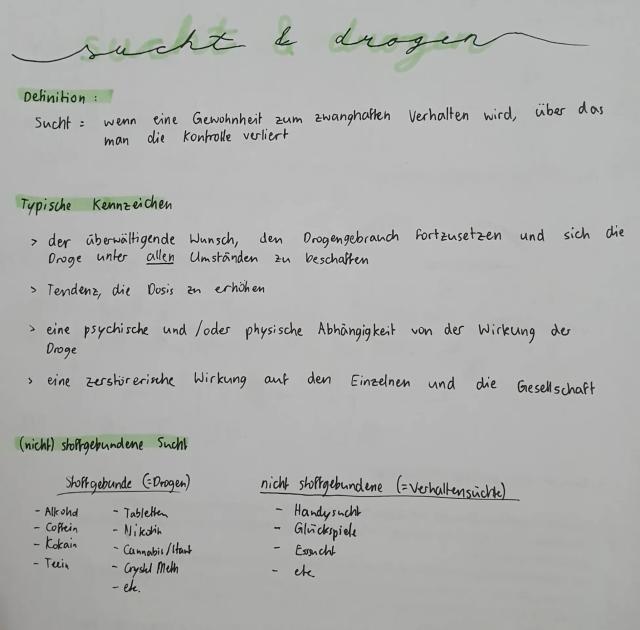 sucht & drogen
Definition :
Sucht = wenn eine Gewohnheit zum zwanghaften Verhalten wird, über das
man die Kontrolle verliert
Typische Kennzeichen
> der überwältigende Wunsch, den Drogengebrauch fortzusetzen und sich die
Droge unter allen Umständen zu beschaffen
> Tendenz, die Dosis zu erhöhen
> eine psychische und /oder physische Abhängigkeit von der Wirkung der
Droge
> eine zerstörerische Wirkung auf den Einzelnen und die Gesellschaft
(nicht) stoffgebundene Sucht
Stoffgebunde (=Drogen)
- Alkohol
- Coffein
- Kokain
- Tein
- Tabletten
- Nikotin
- Cannabis/
- Crystal Meth
- etc.
nicht stoffgebundene (=Verhaltensüchte)
- Handysucht
- Glückspiele
- Esssucht
- etc